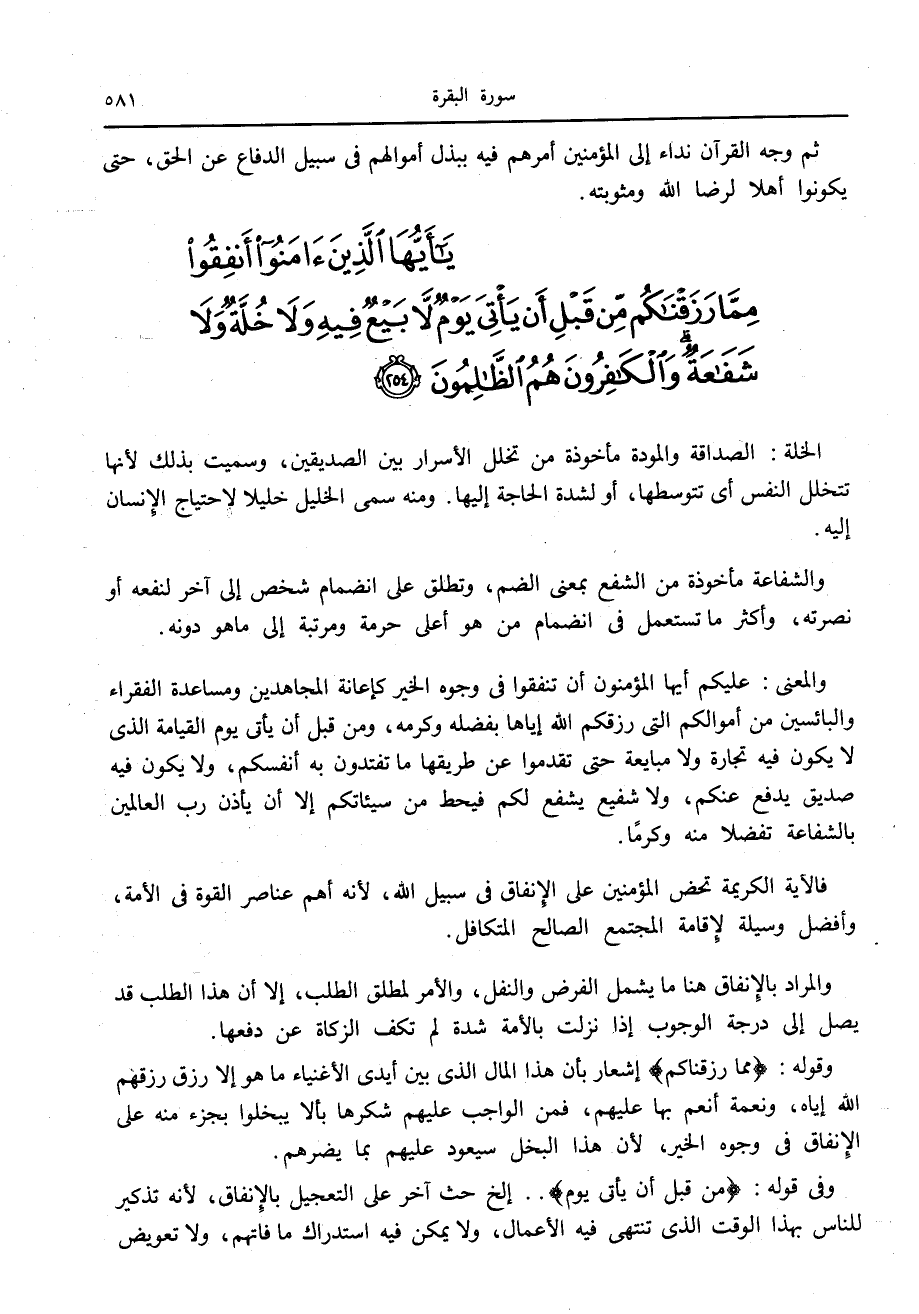 سورة البقرة ٥٨١
ثم وجه القرآن نداء إلى المؤمنين أمرهم فيه ببذل أموالهم فى سبيل الدفاع عن الحق، حتى
يكونوا أهلا لرضا الله ومثوبته.
يَٰٓأَيُّهَا ٱلَّذِينَ ءَامَنُوٓا۟ أَنفِقُوا۟
مِمَّا رَزَقْنَٰكُم مِّن قَبْلِ أَن يَأْتِىَ يَوْمٌ لَّا بَيْعٌ فِيهِ وَلَا خُلَّةٌ وَلَا
شَفَٰعَةٌ ۗ وَٱلْكَٰفِرُونَ هُمُ ٱلظَّٰلِمُونَ ﴿٢٥٤﴾
الخلة : الصداقة والمودة مأخوذة من تخلل الأسرار بين الصديقين، وسميت بذلك لأنها
تتخلل النفس أى تتوسطها، أو لشدة الحاجة إليها. ومنه سمى الخليل خليلا لإحتياج الإنسان
إليه.
والشفاعة مأخوذة من الشفع بمعنى الضم، وتطلق على انضمام شخص إلى آخر لنفعه أو
نصرته، وأكثر ما تستعمل فى انضمام من هو أعلى حرمة ومرتبة إلى ماهو دونه.
والمعنى : عليكم أيها المؤمنون أن تنفقوا فى وجوه الخير كإعانة المجاهدين ومساعدة الفقراء
والبائسين من أموالكم التى رزقكم الله إياها بفضله وكرمه، ومن قبل أن يأتى يوم القيامة الذى
لا يكون فيه تجارة ولا مبايعة حتى تقدموا عن طريقها ما تفتدون به أنفسكم، ولا يكون فيه
صديق يدفع عنكم، ولا شفيع يشفع لكم فيحط من سيئاتكم إلا أن يأذن رب العالمين
بالشفاعة تفضلا منه وكرمًا.
فالآية الكريمة تحض المؤمنين على الإنفاق فى سبيل الله، لأنه أهم عناصر القوة فى الأمة،
وأفضل وسيلة لإقامة المجتمع الصالح المتكافل.
والمراد بالإنفاق هنا ما يشمل الفرض والنفل، والأمر لمطلق الطلب، إلا أن هذا الطلب قد
يصل إلى درجة الوجوب إذا نزلت بالأمة شدة لم تكف الزكاة عن دفعها.
وقوله : ﴿مما رزقناكم﴾ إشعار بأن هذا المال الذى بين أيدى الأغنياء ما هو إلا رزق رزقهم
الله إياه، ونعمة أنعم بها عليهم، فمن الواجب عليهم شكرها بألا يبخلوا بجزء منه على
الإنفاق فى وجوه الخير، لأن هذا البخل سيعود عليهم بما يضرهم.
وفى قوله : ﴿من قبل أن يأتى يوم﴾.. إلخ حث آخر على التعجيل بالإنفاق، لأنه تذكير
للناس بهذا الوقت الذى تنتهى فيه الأعمال، ولا يمكن فيه استدراك ما فاتهم، ولا تعويض